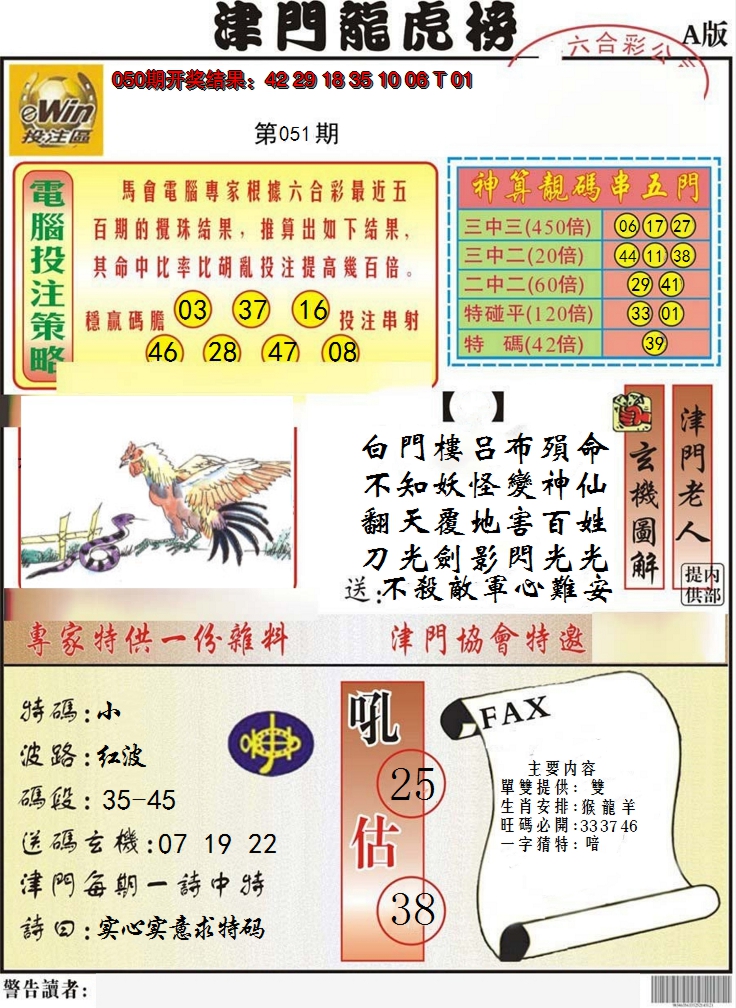 津門龍虎榜
A版
六合彩公
050期开奖结果：42 29 18 35 10 06 T 01
eWin
投注區
第051期
電腦投注策略
馬會電腦專家根據六合彩最近五
百期的攪珠结果，推算出如下结果，
其命中比率比胡亂投注提高幾百倍。
穩贏碼膽 03 37 16 投注串射
46 28 47 08
神算靚碼串五門
三中三(450倍) 06 17 27
三中二(20倍) 44 11 38
二中二(60倍) 29 41
特碰平(120倍) 33 01
特 碼(42倍) 39
【 】
白門樓呂布殞命
不知妖怪變神仙
翻天覆地害百姓
刀光劍影閃光光
送:不殺敵軍心難安
玄機圖解
津門老人
内部提供
專家特供一份雜料
津門協會特邀
特碼:小
波路:红波
碼段:35-45
送碼玄機:07 19 22
津門每期一詩中特
詩曰:实心实意求特码
吼
25
估
38
FAX
主要内容
單雙提供: 雙
生肖安排:猴龍羊
旺碼必開:33 37 46
一字猜特:喑
警告讀者: